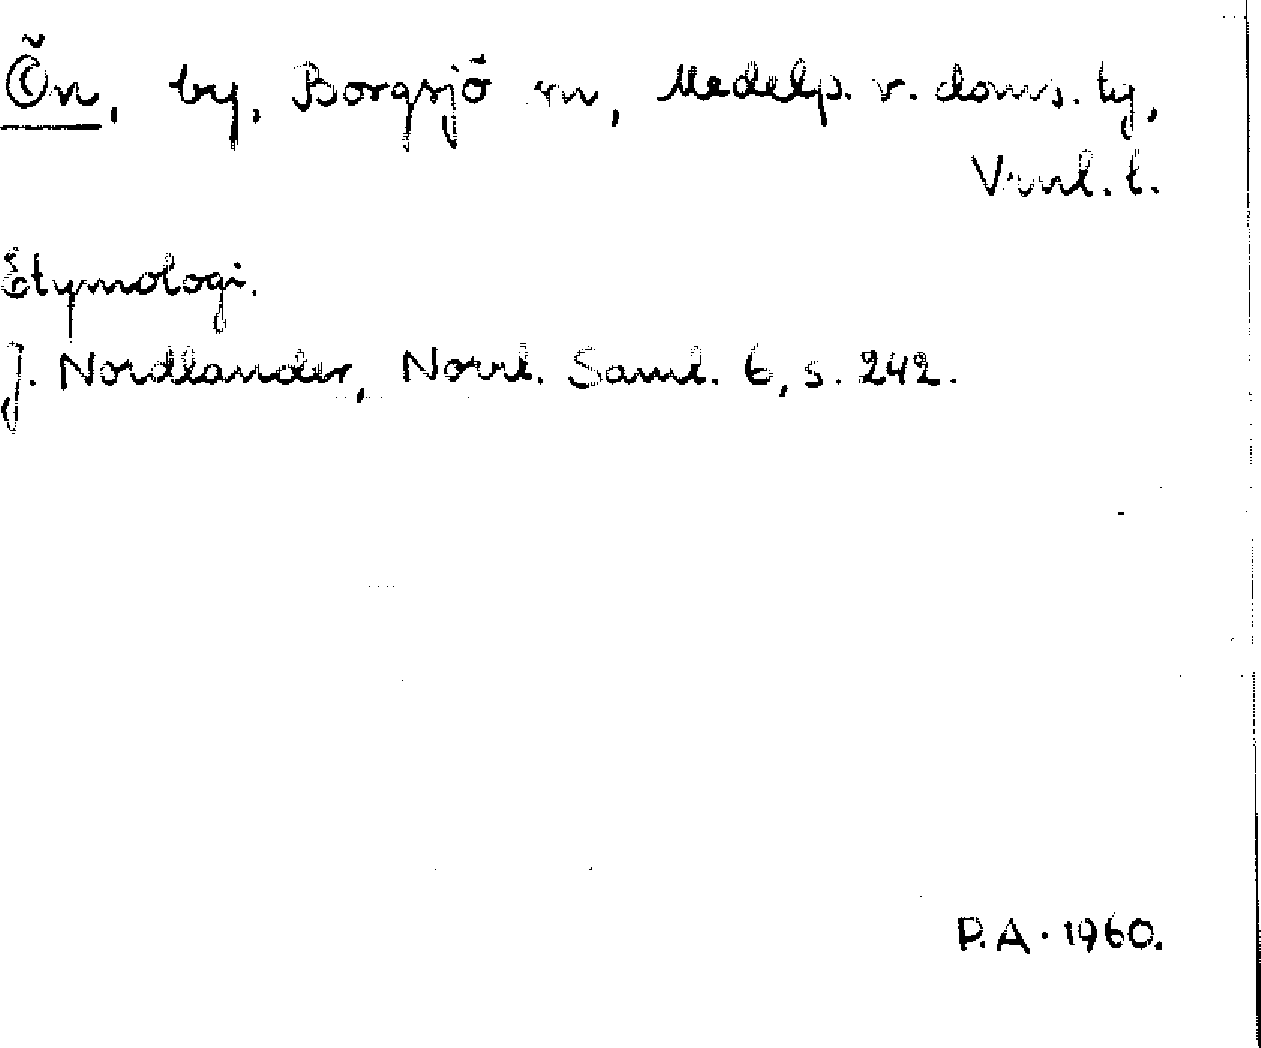 Ön, by, Borgsjö sn, Medelp. v. doms. tg,
Vrnl. l.
Etymologi.
J. Nordlander, Norrl. Saml. 6, s. 242.
P.A. 1960.